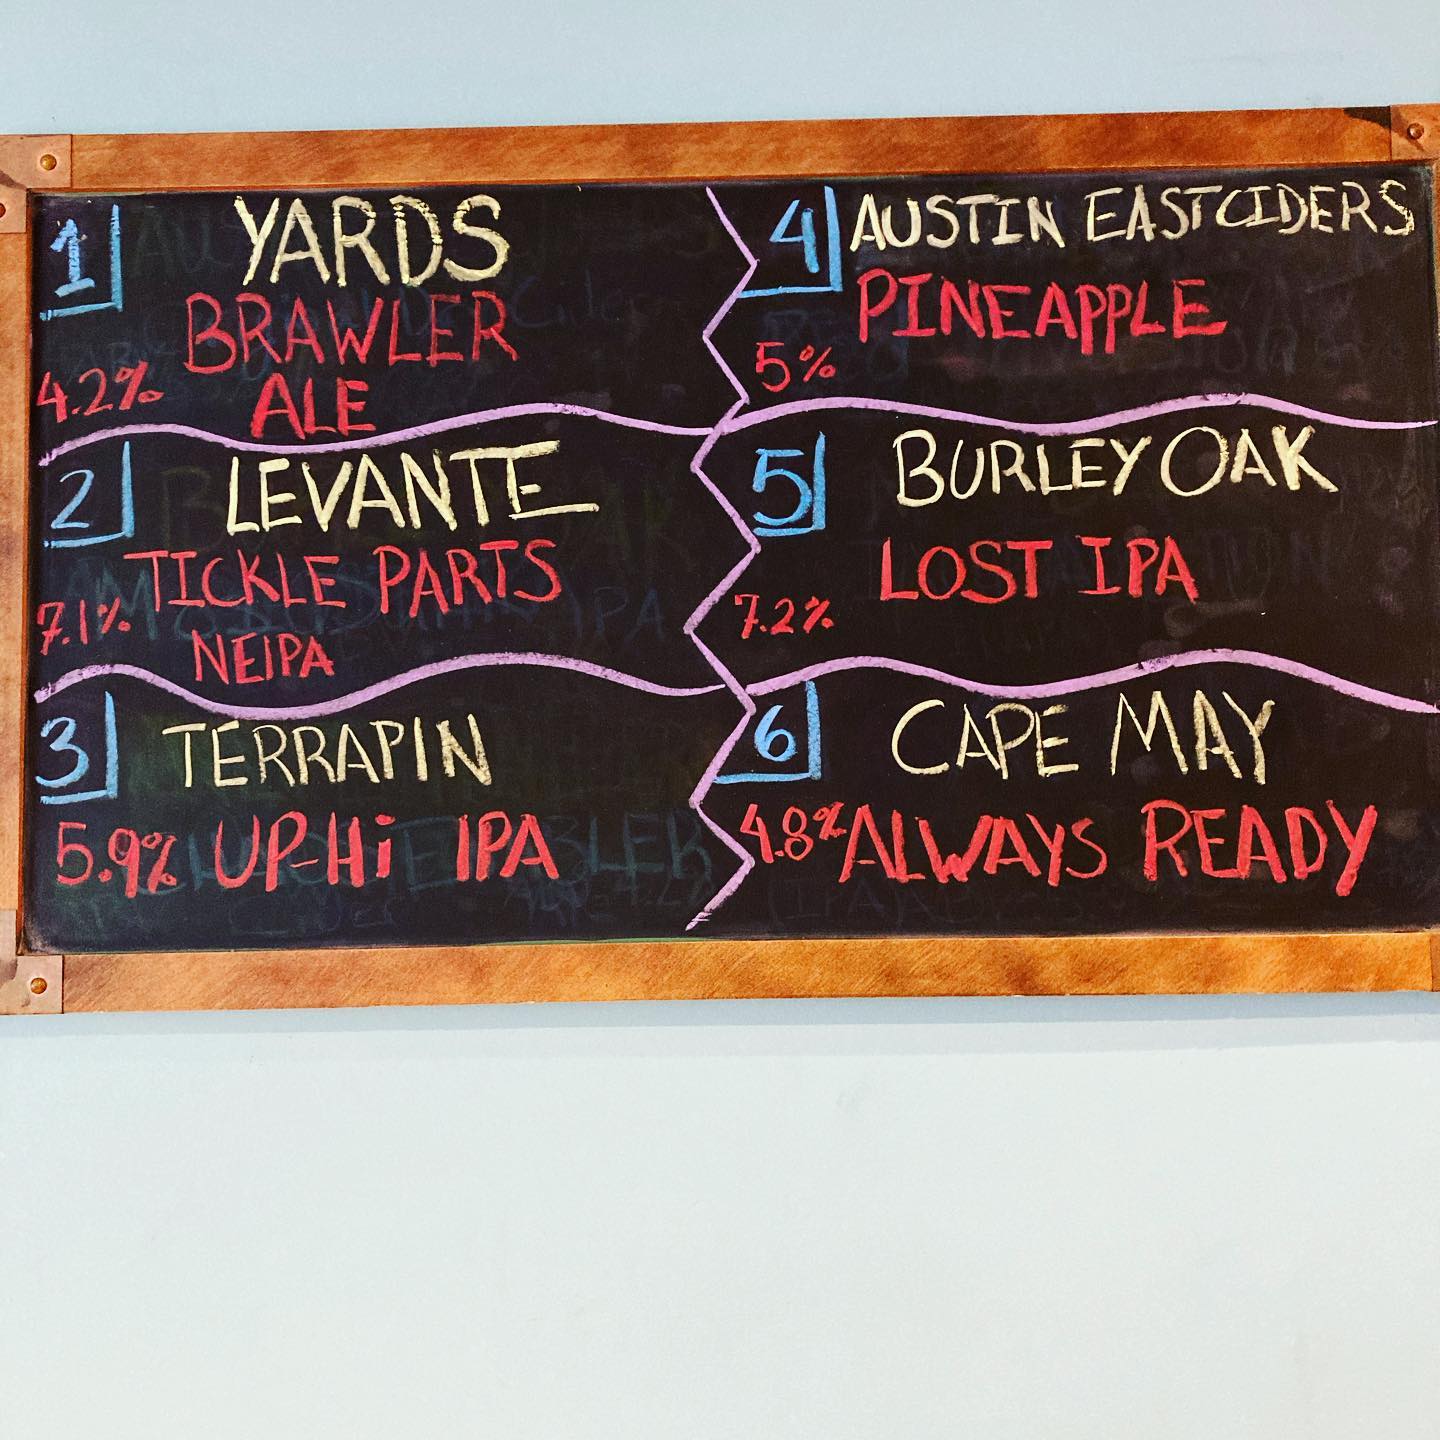 1 YARDS
BRAWLER
4.2% ALE
2 LEVANTE
TICKLE PARTS
7.1% NEIPA
3 TERRAPIN
5.9% UP-Hi IPA
4 AUSTIN EASTCIDERS
PINEAPPLE
5%
5 BURLEY OAK
LOST IPA
7.2%
6 CAPE MAY
4.8% ALWAYS READY